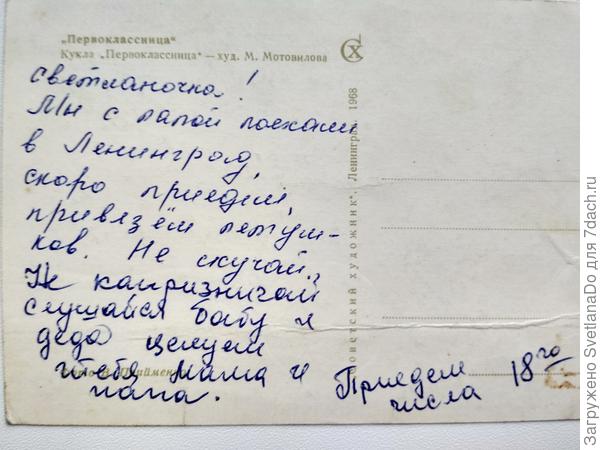 „Первоклассница“
Кукла „Первоклассница“ — худ. М. Мотовилова
Светланочка!
Мы с папой поехали
в Ленинград,
скоро приедем,
привезём петуш-
ков. Не скучай,
Не капризничай
слушайся бабу и
деда целуем
тебя мама и
папа.
Приедем 18го
числа
Советский художник". Ленинград 1968
Загружено SvetlanaDo для 7dach.ru